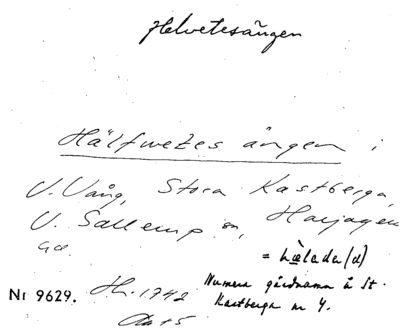 Helvetesängen
Hälfwetes ängen i
U. Vång, Stora Kastberga,
U. Sallerup sn, Harjagers
hd.
= hælada(d)
Numera gårdnamn å St.
Kastberga nr 4.
Nr 9629. Hh. 1742